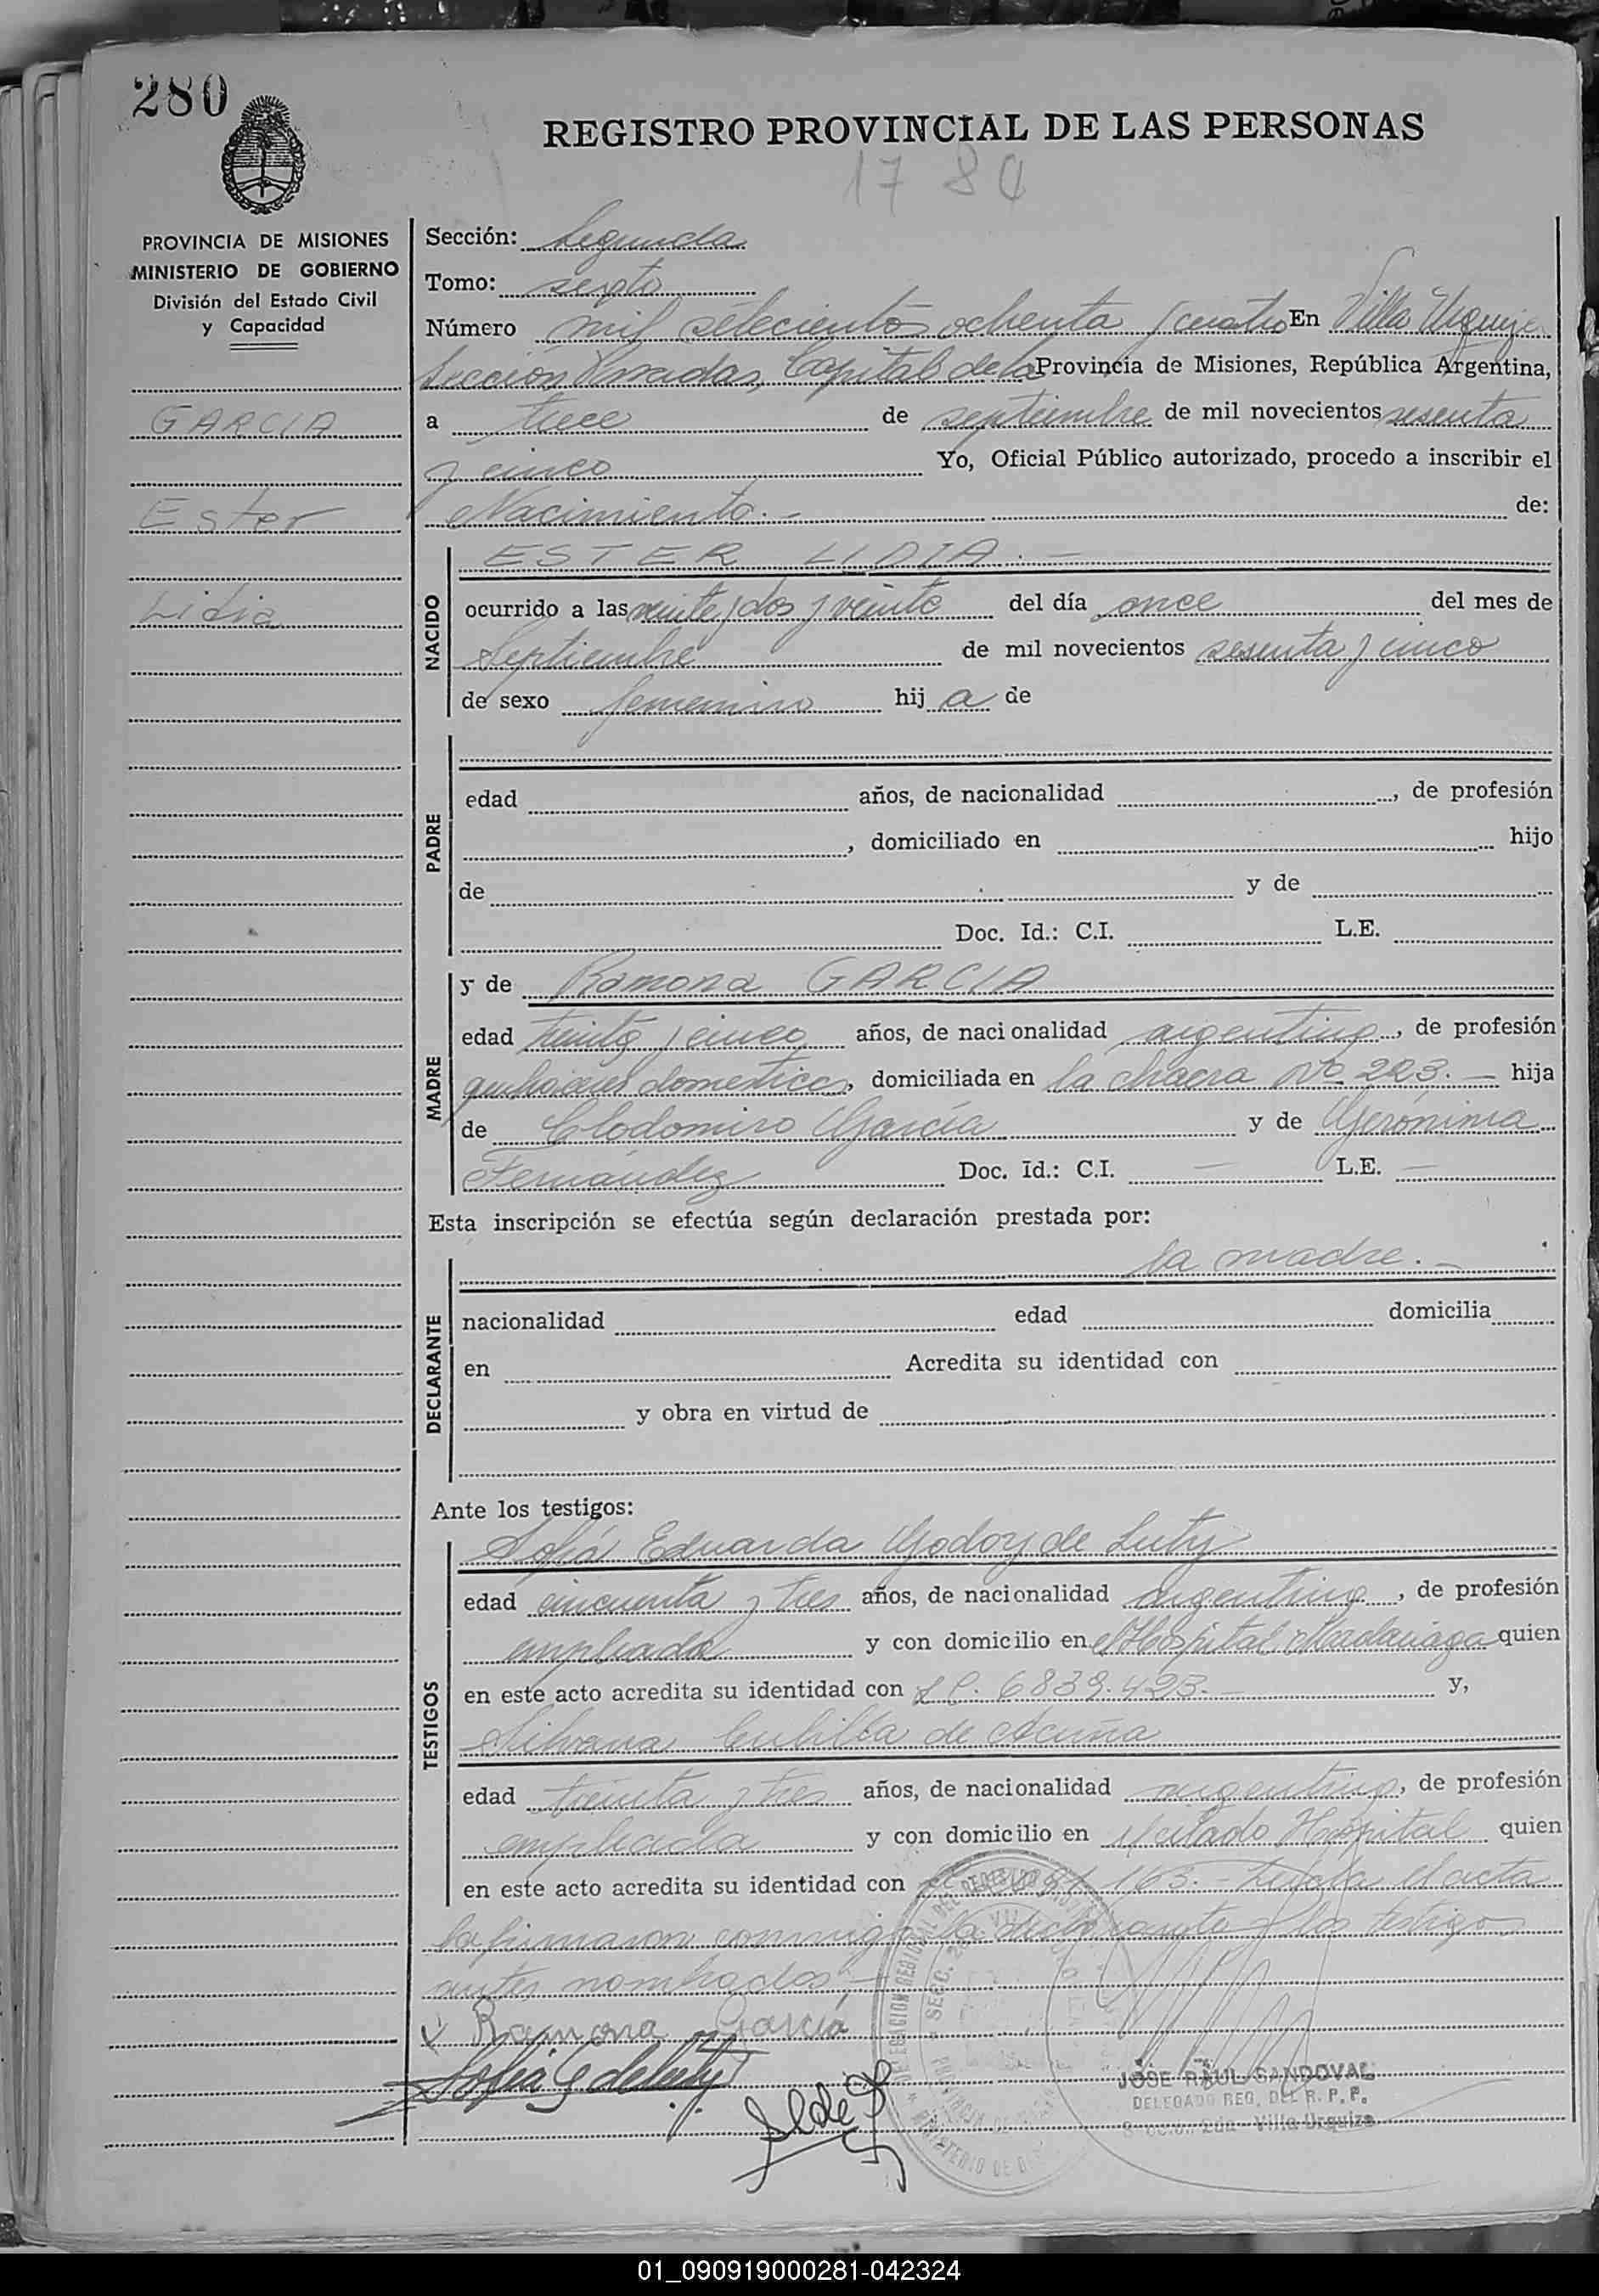 280
REGISTRO PROVINCIAL DE LAS PERSONAS
17 84
PROVINCIA DE MISIONES
MINISTERIO DE GOBIERNO
División del Estado Civil
y Capacidad
GARCIA
Ester
Lidia
Sección: Segunda
Tomo: sexto
Número mil setecientos ochenta y cuatro En Villa Urquiza
Sección Posadas, Capital de la Provincia de Misiones, República Argentina,
a trece de septiembre de mil novecientos sesenta
y cinco Yo, Oficial Público autorizado, procedo a inscribir el
Nacimiento.- de:
NACIDO
ESTER LIDIA.-
ocurrido a las veinte y dos y veinte del día once del mes de
Septiembre de mil novecientos sesenta y cinco
de sexo femenino hija de
PADRE
edad años, de nacionalidad , de profesión
, domiciliado en hijo
de y de
Doc. Id.: C.I. L.E.
MADRE
y de Ramona GARCIA
edad treinta y cinco años, de nacionalidad argentina, de profesión
quehaceres domesticos, domiciliada en la chacra Nº 223.- hija
de Clodomiro García y de Gerónima
Fernández Doc. Id.: C.I. — L.E. —
Esta inscripción se efectúa según declaración prestada por:
DECLARANTE
la madre.-
nacionalidad edad domicilia
en Acredita su identidad con
y obra en virtud de
Ante los testigos:
TESTIGOS
Sofía Eduarda Godoy de Luty
edad cincuenta y tres años, de nacionalidad argentina, de profesión
empleada y con domicilio en el Hospital Madariaga quien
en este acto acredita su identidad con 6.839.423.- y,
Silvana Cubilla de Acuña
edad treinta y tres años, de nacionalidad argentina, de profesión
empleada y con domicilio en el citado Hospital quien
en este acto acredita su identidad con 163.- Leida el acta
la firmaron conmigo la declarante y los testigos
antes nombrados.-
x Ramona García
Sofia G de Luty
JOSE RAUL SANDOVAL
DELEGADO REG. DEL R. P. P.
Secció. 2da - Villa Urquiza
01_090919000281-042324